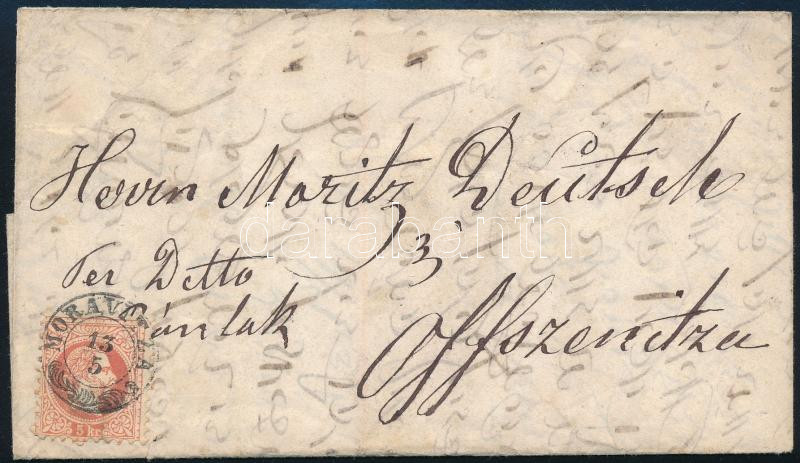 Herrn Moritz Deutsch
in
Per Detta
Offszenitza
MORAVICZA
13
5
5 kr
darabanth